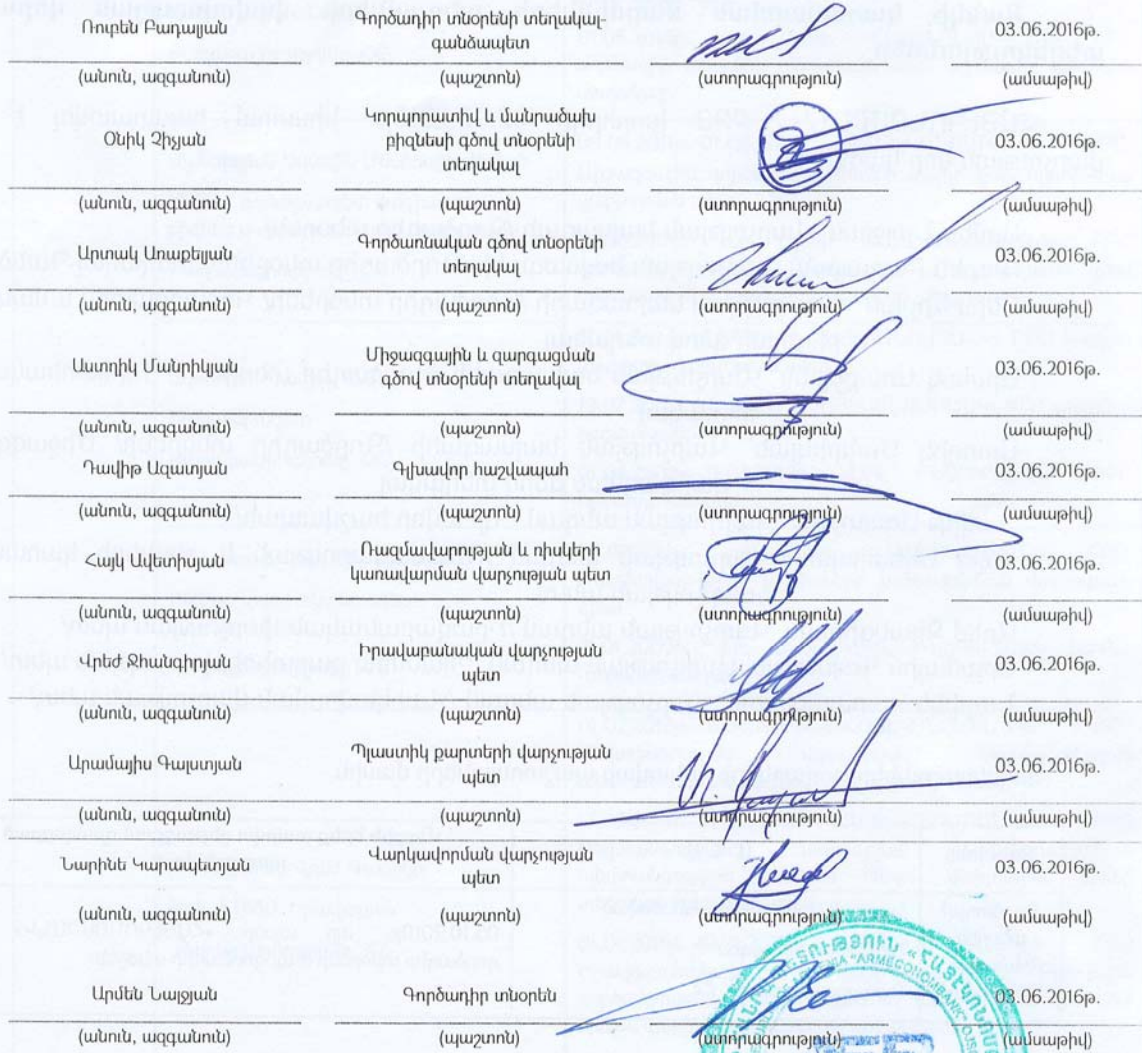 Ռուբեն Բադալյան Գործադիր տնօրենի տեղակալ- 03.06.2016թ.
գանձապետ
(անուն, ազգանուն) (պաշտոն) (ստորագրություն) (ամսաթիվ)
Օնիկ Չիչյան Կորպորատիվ և մանրածախ 03.06.2016թ.
բիզնեսի գծով տնօրենի
տեղակալ
(անուն, ազգանուն) (պաշտոն) (ստորագրություն) (ամսաթիվ)
Արտակ Առաքելյան Գործառնական գծով տնօրենի 03.06.2016թ.
տեղակալ
(անուն, ազգանուն) (պաշտոն) (ստորագրություն) (ամսաթիվ)
Աստղիկ Մանրիկյան Միջազգային և զարգացման 03.06.2016թ.
գծով տնօրենի տեղակալ
(անուն, ազգանուն) (պաշտոն) (ստորագրություն) (ամսաթիվ)
Դավիթ Ազատյան Գլխավոր հաշվապահ 03.06.2016թ.
(անուն, ազգանուն) (պաշտոն) (ստորագրություն) (ամսաթիվ)
Հայկ Ավետիսյան Ռազմավարության և ռիսկերի 03.06.2016թ.
կառավարման վարչության պետ
(անուն, ազգանուն) (պաշտոն) (ստորագրություն) (ամսաթիվ)
Վրեժ Ջհանգիրյան Իրավաբանական վարչության 03.06.2016թ.
պետ
(անուն, ազգանուն) (պաշտոն) (ստորագրություն) (ամսաթիվ)
Արամայիս Գալստյան Պլաստիկ քարտերի վարչության 03.06.2016թ.
պետ
(անուն, ազգանուն) (պաշտոն) (ստորագրություն) (ամսաթիվ)
Նարինե Կարապետյան Վարկավորման վարչության 03.06.2016թ.
պետ
(անուն, ազգանուն) (պաշտոն) (ստորագրություն) (ամսաթիվ)
Արմեն Նալջյան Գործադիր տնօրեն 03.06.2016թ.
(անուն, ազգանուն) (պաշտոն) (ստորագրություն) (ամսաթիվ)
"ARMECONOMBANK"